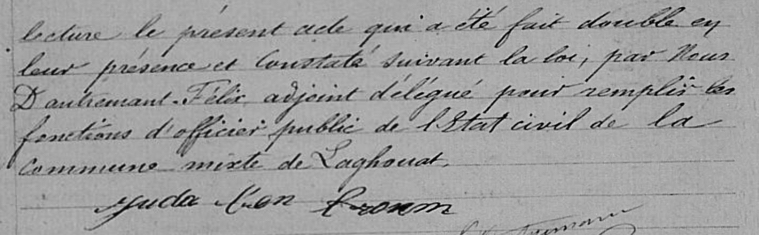 lecture le présent acte qui a été fait double en
leur présence et Constaté suivant la loi, par Nous
Dautremant Félix, adjoint délégué pour remplir les
fonctions d'officier public de l'Etat civil de la
Commune mixte de Laghouat.
Juda